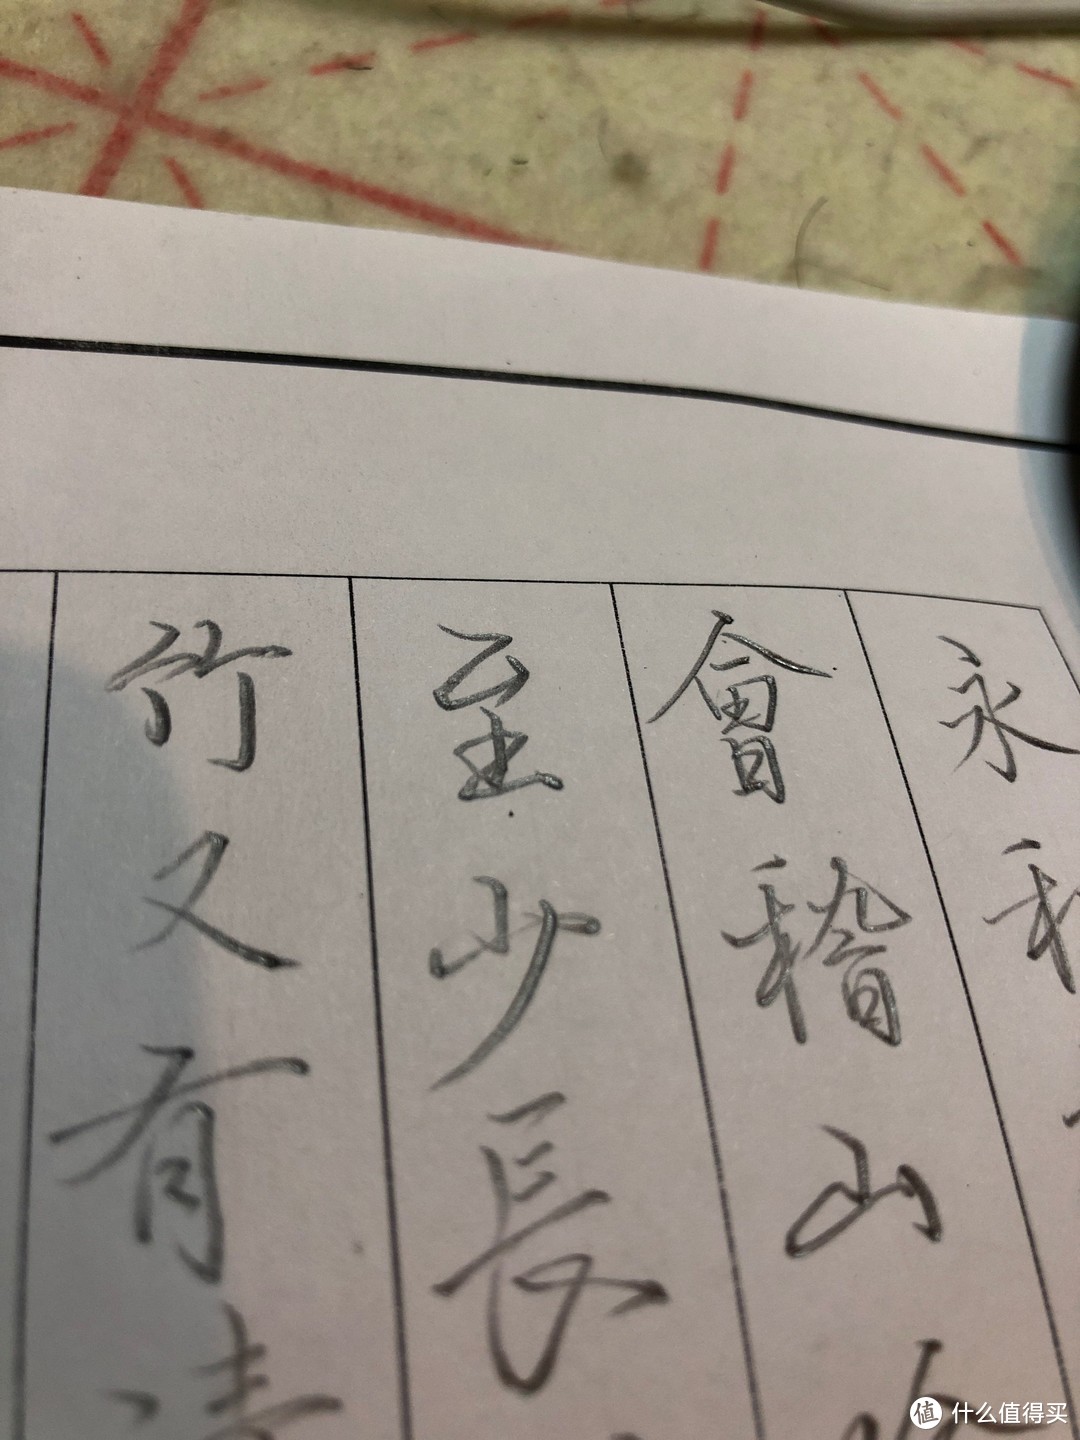 永和
會稽山
至少長
竹又有清
值 什么值得买